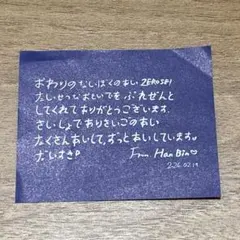 おわりのないぼくのあい ZEROSE!
たいせつなおもいでを ぷれぜんと
してくれてありがとうございます。
さいしょでありさいごのあい
たくさんあいして、ずっとあいしています。
だいすき♡
From Han Bin♡
2026.02.14